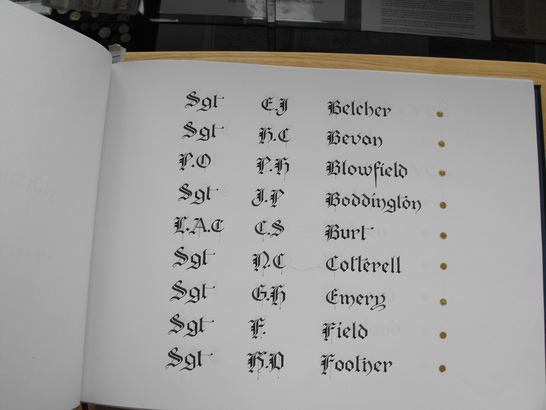 Sgt E.J Belcher
Sgt H.C Bevan
P.O P.H Blowfield
Sgt J.P Boddington
L.A.C C.S Burt
Sgt N.C Cotterell
Sgt G.H Emery
Sgt F. Field
Sgt H.D Foother